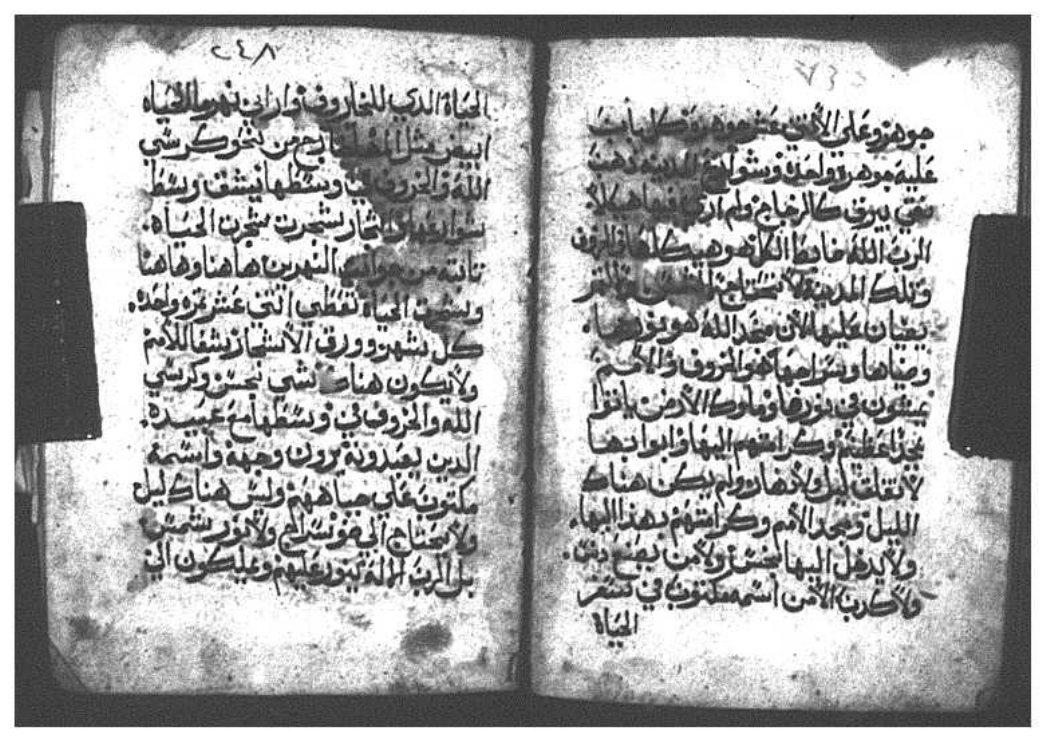 جوهر وعلى الأثني عشر جوهره كل باب
عليه جوهره واحده وسوارع المدينه دهب
نقي يبرق كالزجاج ولم ارى فيها هيكلا
الرب الله ضابط الكل هو هيكلها والخروف
وتلك المدينة لا تحتاج الشمس والقمر
يضيان عليها لان مجد الله هو نورها
وضياها وسراجها هو الخروف والأمم
يمشون في نورها وملوك الأرض ياتوا
مجدا عظيم وكرامتهم اليها وابوابها
لا تغلق ليل ولا نهار ولم يكن هناك
الليل ومجد الأمم وكرامتهم بهذا اليها.
ولا يدخل اليها نجس ولا من يصنع
ولا كدب الا من اسمه مكتوب في سفر
الحياة
٢٤٨
الحياة الدي للخاروف واراني نهر ما الحياه
ابيض مثل خارج من نحو كرسي
الله والخروف وسطها
شجرت شجرت الحياة.
نابته من جوانب النهرين هاهنا وهاهنا
الحياة تعطي اثني عشر تمره واحده
كل شهر وورق الأشجار شفا للأمم
ولا يكون هناك شي نجس وكرسي
الله والخروف في وسطها مع عبيده.
الدين يعبدونه يرون وجهه واسمه
مكتوب على جباههم وليس هناك ليل
ولا يحتاج الي ضو سراج ولا نور شمس
بل الرب الاله ينور عليهم ويملكون الي